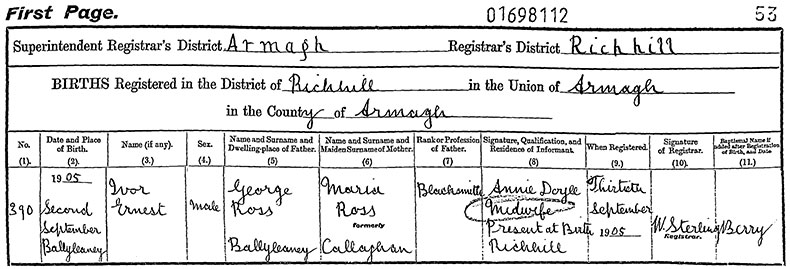 First Page. 01698112 53
Superintendent Registrar's District Armagh Registrar's District Richhill
BIRTHS Registered in the District of Richhill in the Union of Armagh
in the County of Armagh
No. Date and Place of Birth. Name (if any). Sex. Name and Surname and Dwelling-place of Father. Name and Surname and Maiden Surname of Mother. Rank or Profession of Father. Signature, Qualification, and Residence of Informant. When Registered. Signature of Registrar. Baptismal Name if added after Registration of Birth, and Date
(1). (2). (3.) (4.) (5) (6) (7) (8) (9.) (10.) (11.)
1905 Ivor George Maria Blacksmith Annie Doyle Thirtieth
390 Second Ernest Male Ross Ross Midwife September
September formerly Present at Birth 1905 W. Sterling Berry
Ballyleaney Ballyleaney Callaghan Richhill Registrar.